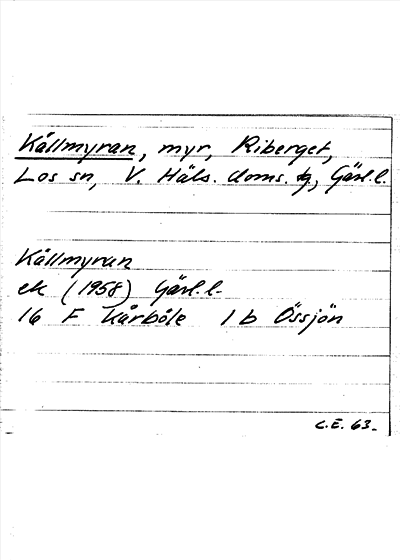 Kållmyran, myr, Riberget,
Los sn, V. Häls. doms. tg, Gävl. l.
Kållmyran
ek (1958) Gävl. l.
16 F Kårböle 1 b Össjön
C.E. 63.